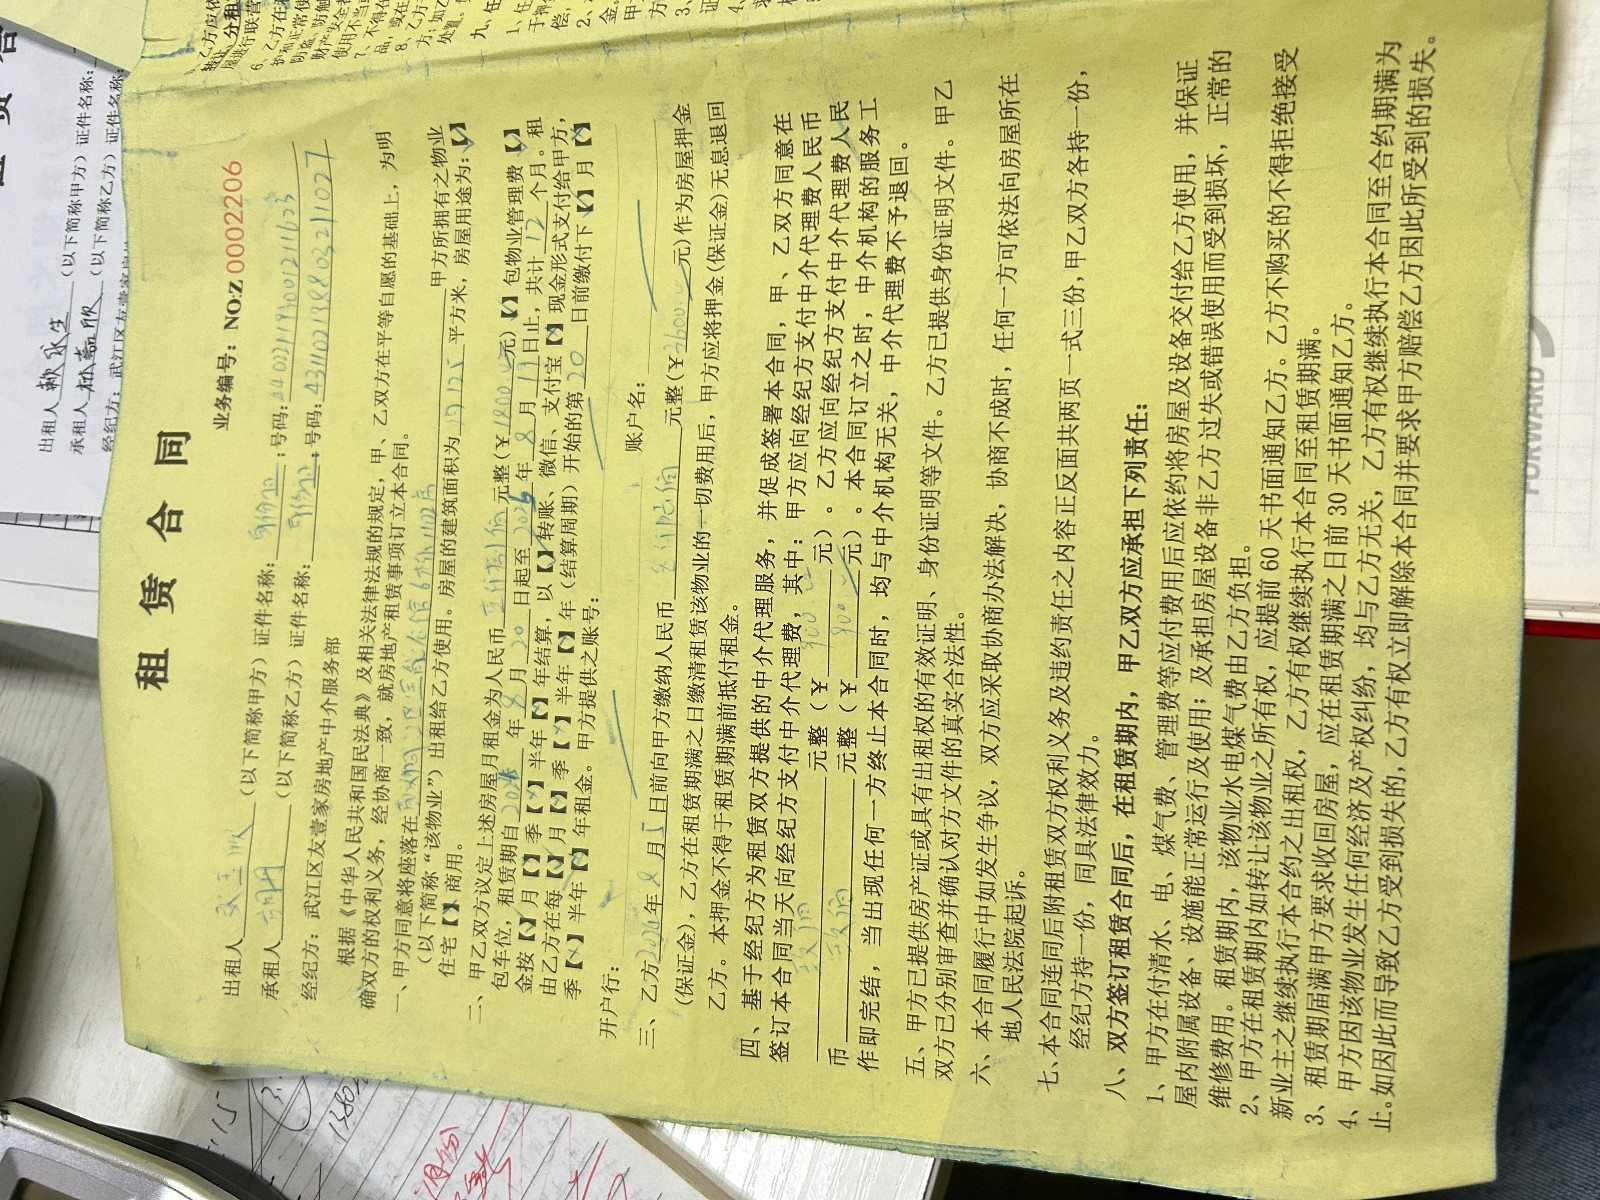 租赁合同
业务编号：NO:Z 0002206
出租人（以下简称甲方）证件名称：身份证；号码：
承租人 胡丹（以下简称乙方）证件名称：身份证；号码：431102198803211027
经纪方：武江区友壹家房地产中介服务部
根据《中华人民共和国民法典》及相关法律法规的规定，甲、乙双方在平等自愿的基础上，为明
确双方的权利义务，经协商一致，就房地产和租赁事项订立本合同。
一、甲方同意将座落在 甲方所拥有之物业
（以下简称“该物业”）出租给乙方使用。房屋的建筑面积为 平方米，房屋用途为：【✓】
住宅【 】、商用。
二、甲乙双方议定上述房屋月租金为人民币 壹仟捌佰 元整（￥1800元）【✓】包物业管理费【✓】
包车位，租赁期自 年 8 月 20 日起至 2026 年 8 月 19 日止，共计 12 个月。租
金按【✓】月【 】季【 】半年【 】年结算，以【✓】转账、微信、支付宝【 】现金形式支付给甲方，
由乙方在每【✓】月【 】季【 】半年【 】年（结算周期）开始的第 20 日前缴付下【✓】月【 】
季【 】半年【 】年租金。甲方提供之账号：
开户行： 账户名：
三、乙方 年 8 月 5 日前向甲方缴纳人民币 元整（￥3600元）作为房屋押金
（保证金），乙方在租赁期满之日缴清租赁该物业的一切费用后，甲方应将押金（保证金）无息退回
乙方。本押金不得于租赁期满前抵付租金。
四、基于经纪方为租赁双方提供的中介代理服务，并促成签署本合同，甲、乙双方同意在
签订本合同当天向经纪方支付中介代理费，其中：甲方应向经纪方支付中介代理费人民币
玖佰 元整（￥900元）。乙方应向经纪方支付中介代理费人民
币 玖佰 元整（￥900元）。本合同订立之时，中介机构的服务工
作即完结，当出现任何一方终止本合同时，均与中介机构无关，中介代理费不予退回。
五、甲方已提供房产证或具有出租权的有效证明、身份证明等文件。乙方已提供身份证明文件。甲乙
双方已分别审查并确认对方文件的真实合法性。
六、本合同履行中如发生争议，双方应采取协商办法解决，协商不成时，任何一方可依法向房屋所在
地人民法院起诉。
七、本合同连同后附租赁双方权利义务及违约责任之内容正反面共两页一式三份，甲乙双方各持一份，
经纪方持一份，同具法律效力。
八、双方签订租赁合同后，在租赁期内，甲乙双方应承担下列责任：
1、甲方在付清水、电、煤气费、管理费等应付费用后应依约将房屋及设备交付给乙方使用，并保证
屋内附属设备、设施能正常运行及使用；及承担房屋设备非乙方过失或错误使用而受到损坏，正常的
维修费用。租赁期内，该物业水电煤气费由乙方负担。
2、甲方在租赁期内如转让该物业之所有权，应提前 60 天书面通知乙方。乙方不购买的不得拒绝接受
新业主之继续执行本合约之出租权，乙方有权继续执行本合同至租赁期满。
3、租赁期届满甲方要求收回房屋，应在租赁期满之日前 30 天书面通知乙方。
4、甲方因该物业发生任何经济及产权纠纷，均与乙方无关，乙方有权继续执行本合同至合约期满为
止。如因此而导致乙方受到损失的，乙方有权立即解除本合同并要求甲方赔偿乙方因此所受到的损失。
出租人 赖永生（以下简称甲方）证件名称：
承租人（以下简称乙方）证件名称：
经纪方：武江区友壹家
FORWARD